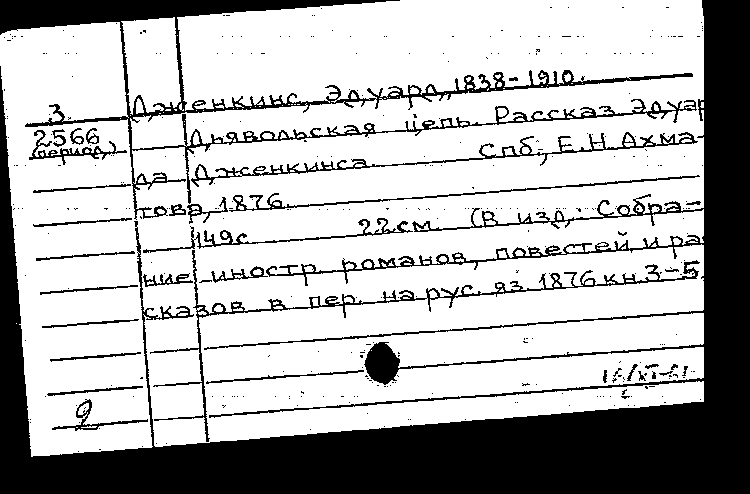 Дженкинс, Эдуард, 1838-1910.
3.
2566
(период.)
Дьявольская цепь. Рассказ Эдуар
да Дженкинса. Спб., Е.Н. Ахма-
това, 1876.
149с. 22см. (В изд.: Собра-
ние иностр. романов, повестей и ра
сказов в пер. на рус. яз. 1876 кн. 3-5.
2